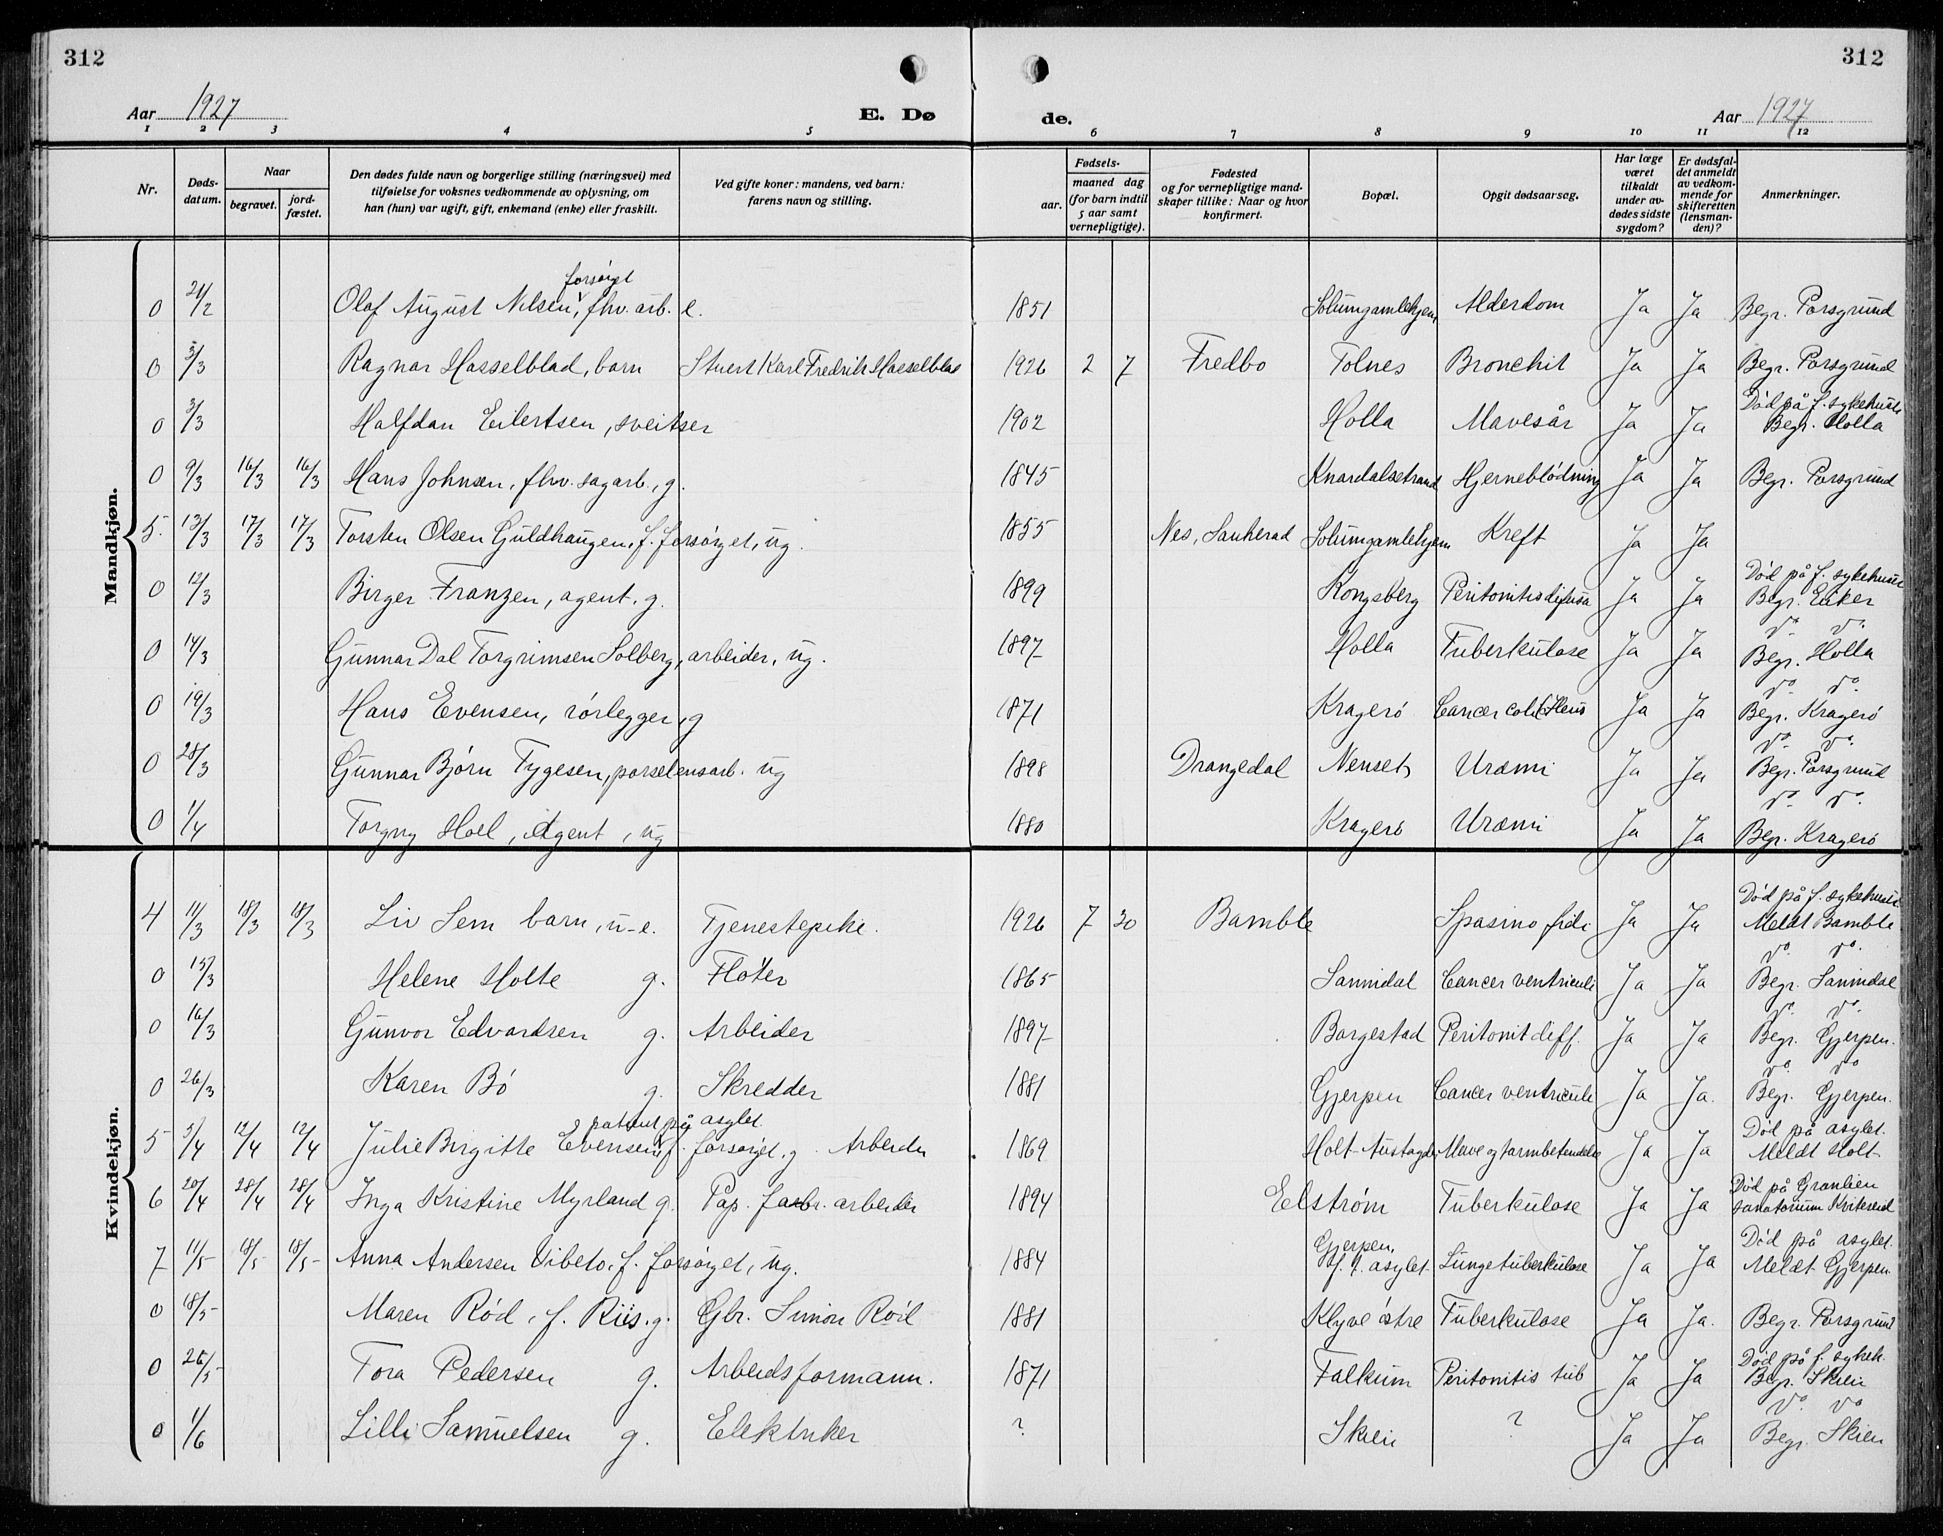 312
312
Aar 1927
E. Dø
de.
Aar 1927
1 2 3 4 5 6 7 8 9 10 11 12
Nr.
Døds-
datum.
Naar
begravet.
jord-
fæstet.
Den dødes fulde navn og borgerlige stilling (næringsvei) med
tilføielse for voksnes vedkommende av oplysning, om
han (hun) var ugift, gift, enkemand (enke) eller fraskilt.
Ved gifte koner: mandens, ved barn:
farens navn og stilling.
Fødsels-
aar.
maaned dag
(for barn indtil
5 aar samt
vernepligtige).
Fødested
og for vernepligtige mand-
skaper tillike: Naar og hvor
konfirmert.
Bopæl.
Opgit dødsaarsag.
Har læge
været
tilkaldt
under av-
dødes sidste
sygdom?
Er dødsfal-
det anmeldt
av vedkom-
mende for
skifteretten
(lensman-
den)?
Anmerkninger.
Mandkjøn.
forsørget
0 21/2 Olaf August Nilsen, fhv. arb. e. 1851 Solumgamlehjem Alderdom Ja Ja Begr. Porsgrund
0 3/3 Ragnar Hasselblad, barn Stuert Karl Fredrik Hasselblad 1926 2 7 Fredbo Tolnes Bronchit Ja Ja Begr. Porsgrund
0 3/3 Halfdan Eilertsen, sveitser 1902 Holla Mavesår Ja Ja Død på f. sykehuset
Begr. Holla
0 9/3 16/3 16/3 Hans Johnsen, fhv. sagarb., g. 1845 Knardalsstrand Hjerneblødning Ja Ja Begr. Porsgrund
5. 13/3 17/3 17/3 Torsten Olsen Guldhaugen, f. forsørget, ug. 1855 Nes, Sauherad Solumgamlehjem Kreft Ja Ja
0 12/3 Birger Franzen, agent, g. 1899 Kongsberg Peritonitis difusa Ja Ja Død på f. sykehuset
Begr. Eiker
0 14/3 Gunnar Dal Torgrimsen Solberg, arbeider, ug. 1897 Holla Tuberkulose Ja Ja do. do.
Begr. Holla
0 19/3 Hans Evensen, rørlegger, g 1871 Kragerø Cancer coli (Ileus Ja Ja do. do.
Begr. Kragerø
0 28/3 Gunnar Bjørn Tygesen, porselensarb. ug 1898 Drangedal Nenset Uræmi Ja Ja do. do.
Begr. Porsgrund
0 1/4 Torgny Hoel, Agent, ug 1880 Kragerø Uræmi Ja Ja do. do.
Begr. Kragerø
Kvindekjøn.
4 11/3 18/3 18/3 Liv Sem barn, u. e. Tjenestepike. 1926 7 30 Bamble Ja Ja Død på f. sykehuset
Meldt Bamble
0 15/3 Helene Holte g. Fløter 1865 Sannidal Cancer ventriculi Ja Ja do. do.
Begr. Sannidal
0 16/3 Gunvor Edvardsen g. Arbeider 1897 Borgestad Peritonit diff. Ja Ja do. do.
Begr. Gjerpen.
0 26/3 Karen Bø g. Skredder 1881 Gjerpen Cancer ventriculi Ja Ja. do. do
Begr. Gjerpen.
patient på asylet
5 5/4 12/4 12/4 Julie Birgitte Evensen, f. forsørget, g. Arbeider 1869 Holt Austagder Mave og tarmbetendelse Ja Ja Død på asylet.
Meldt Holt
6 20/4 28/4 28/4 Inga Kristine Myrland g. Pap. fabr. arbeider 1894 Elstrøm Tuberkulose Ja Ja Død på Grønlien
sanatorium Kviteseid
7 11/5 18/5 18/5 Anna Andersen Vibeto, f. forsørget, ug. 1884 Gjerpen,
f. t. asylet Lungetuberkulose Ja Ja Død på asylet.
Meldt Gjerpen.
0 18/5 Maren Rød, f. Riis. g. Gbr. Simon Rød 1881 Klyve østre Tuberkulose Ja Ja. Begr. Porsgrund
0 26/5 Tora Pedersen g. Arbeidsformann. 1871 Falkum Peritonitis tub Ja Ja Død på f. sykeh.
Begr. Skien
0 1/6 Lilli Samuelsen g. Elektriker ? Skien ? Ja Ja do. do
Begr. Skien